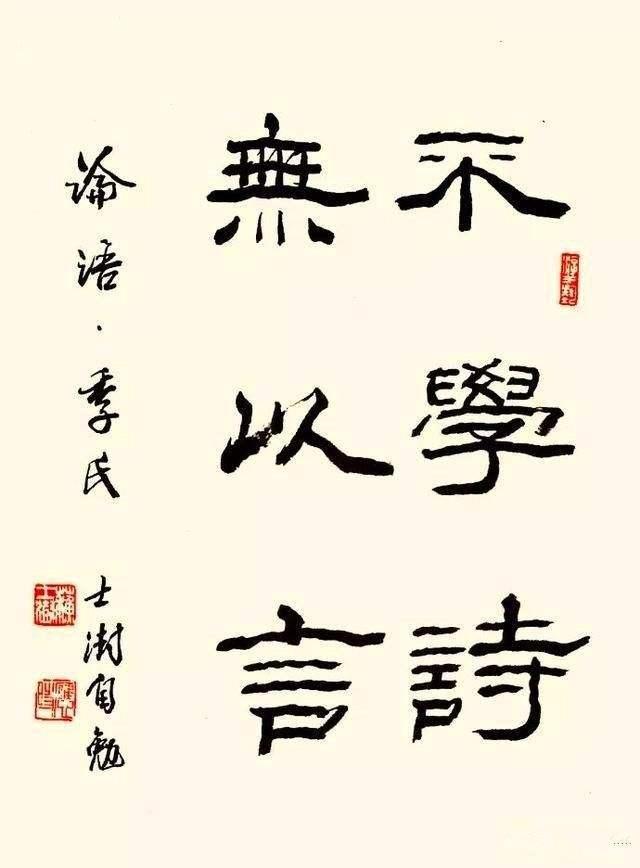 不學詩
無以言
論語·季氏
士澍自勉